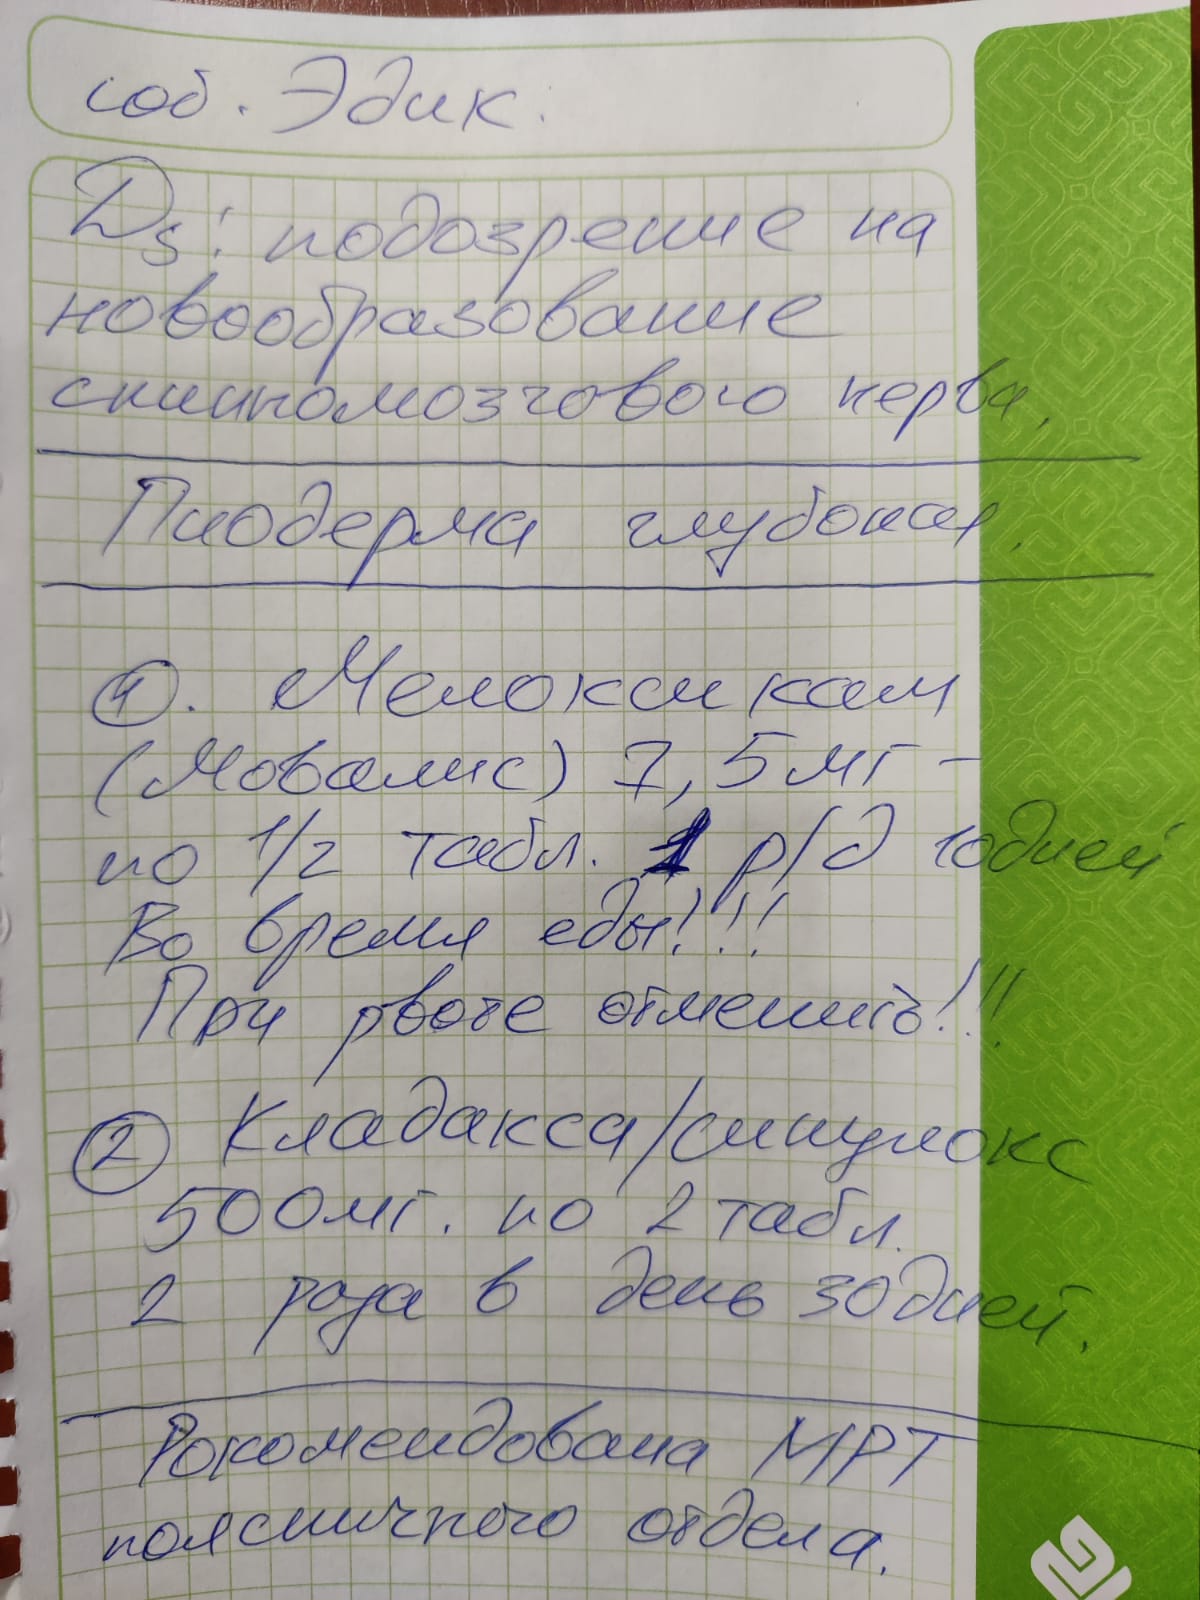 соб. Эдик.
Ds: подозрение на
новообразование
спинномозгового нерва.
Пиодерма глубокая.
1. Мелоксикам
(Мовалис) 7,5 мг -
по 1/2 табл. 1 р/д 10 дней
Во время еды!!!
При рвоте отменить!!!
2 Кладакса/синулокс
500 мг. по 2 табл.
2 раза в день 30 дней.
Рокомендована МРТ
поясничного отдела.